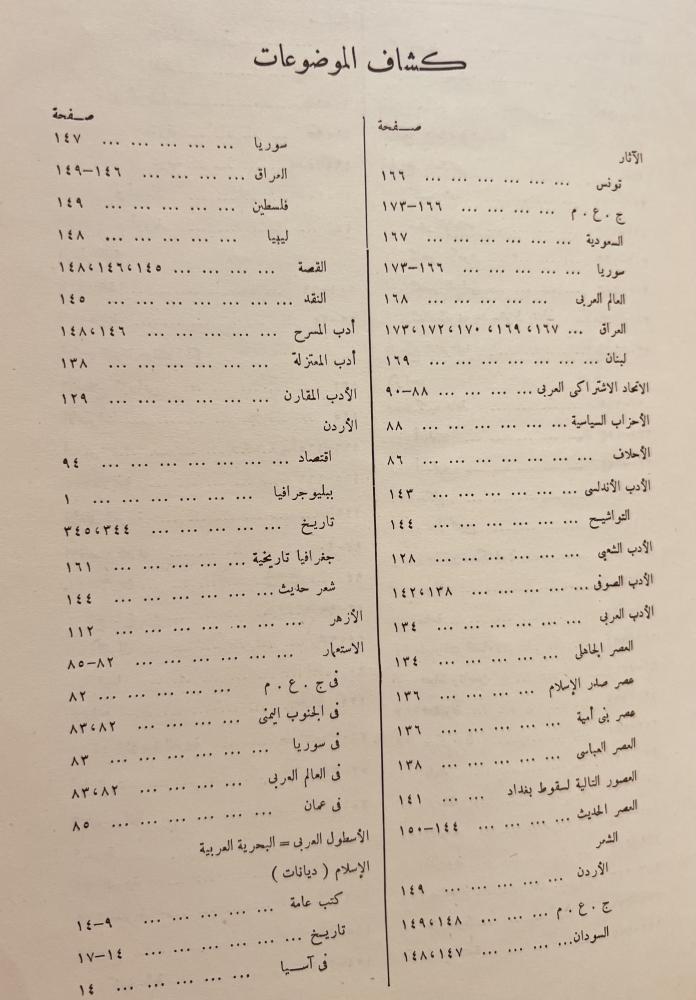 كشاف الموضوعات
صفحة
الآثار
تونس ... ... ... ... ... ... ١٦٦
ج . ع . م ... ... ... ... ١٦٦–١٧٣
السعودية ... ... ... ... ... ... ١٦٧
سوريا ... ... ... ... ... ١٦٦–١٧٣
العالم العربى ... ... ... ... ... ١٦٨
العراق ... ١٦٧، ١٦٩، ١٧٠، ١٧٢، ١٧٣
لبنان ... ... ... ... ... ... ... ١٦٩
الاتحاد الاشتراكى العربى ... ... ... ... ٨٨–٩٠
الأحزاب السياسية ... ... ... ... ... ... ٨٨
الأحلاف ... ... ... ... ... ... ... ٨٦
الأدب الأندلسى ... ... ... ... ... ... ١٤٣
التواشيح ... ... ... ... ... ... ١٤٤
الأدب الشعبى ... ... ... ... ... ... ١٢٨
الأدب الصوفى ... ... ... ... ... ١٣٨، ١٤٢
الأدب العربى ... ... ... ... ... ... ١٣٤
العصر الجاهلى ... ... ... ... ... ١٣٤
عصر صدر الإسلام ... ... ... ... ... ١٣٦
عصر بنى أمية ... ... ... ... ... ... ١٣٦
العصر العباسى ... ... ... ... ... ... ١٣٨
العصور التالية لسقوط بغداد ... ... ١٤١
العصر الحديث ... ... ... ... ١٤٤–١٥٠
الشعر
الأردن ... ... ... ... ... ... ١٤٩
ج . ع . م ... ... ... ... ١٤٨، ١٤٩
السودان ... ... ... ... ... ١٤٧، ١٤٨
صفحة
سوريا ... ... ... ... ... ١٤٧
العراق ... ... ... ... ١٤٦–١٤٩
فلسطين ... ... ... ... ... ١٤٩
ليبيا ... ... ... ... ... ١٤٨
القصة ... ... ... ... ١٤٥، ١٤٦، ١٤٨
النقد ... ... ... ... ... ... ... ١٤٥
أدب المسرح ... ... ... ... ... ١٤٦، ١٤٨
أدب المعتزلة ... ... ... ... ... ... ١٣٨
الأدب المقارن ... ... ... ... ... ... ١٢٩
الأردن
اقتصاد ... ... ... ... ... ... ... ٩٤
ببليوجرافيا ... ... ... ... ... ... ١
تاريخ ... ... ... ... ... ٣٤٤، ٣٤٥
جغرافيا تاريخية ... ... ... ... ... ١٦١
شعر حديث ... ... ... ... ... ... ١٤٤
الأزهر ... ... ... ... ... ... ... ١١٢
الاستعمار ... ... ... ... ... ... ٨٢–٨٥
فى ج . ع . م ... ... ... ... ... ٨٢
فى الجنوب اليمنى ... ... ... ... ٨٢، ٨٣
فى سوريا ... ... ... ... ... ... ٨٣
فى العالم العربى ... ... ... ... ٨٢، ٨٣
فى عمان ... ... ... ... ... ... ٨٥
الأسطول العربى = البحرية العربية
الإسلام ( ديانات )
كتب عامة ... ... ... ... ... ٩–١٤
تاريخ ... ... ... ... ... ... ١٤–١٧
فى آسيا ... ... ... ... ... ١٤